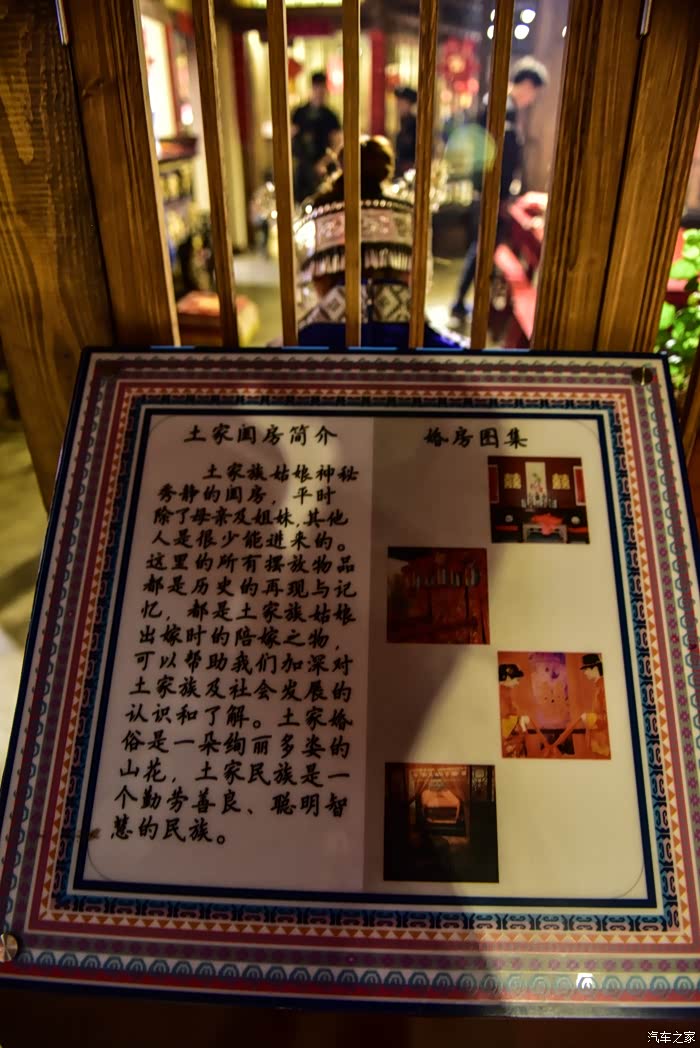 土家闺房简介
土家族姑娘神秘
秀静的闺房，平时
除了母亲及姐妹,其他
人是很少能进来的。
这里的所有摆放物品
都是历史的再现与记
忆，都是土家族姑娘
出嫁时的陪嫁之物，
可以帮助我们加深对
土家族及社会发展的
认识和了解。土家婚
俗是一朵绚丽多姿的
山花，土家民族是一
个勤劳善良、聪明智
慧的民族。
婚房图集
汽车之家